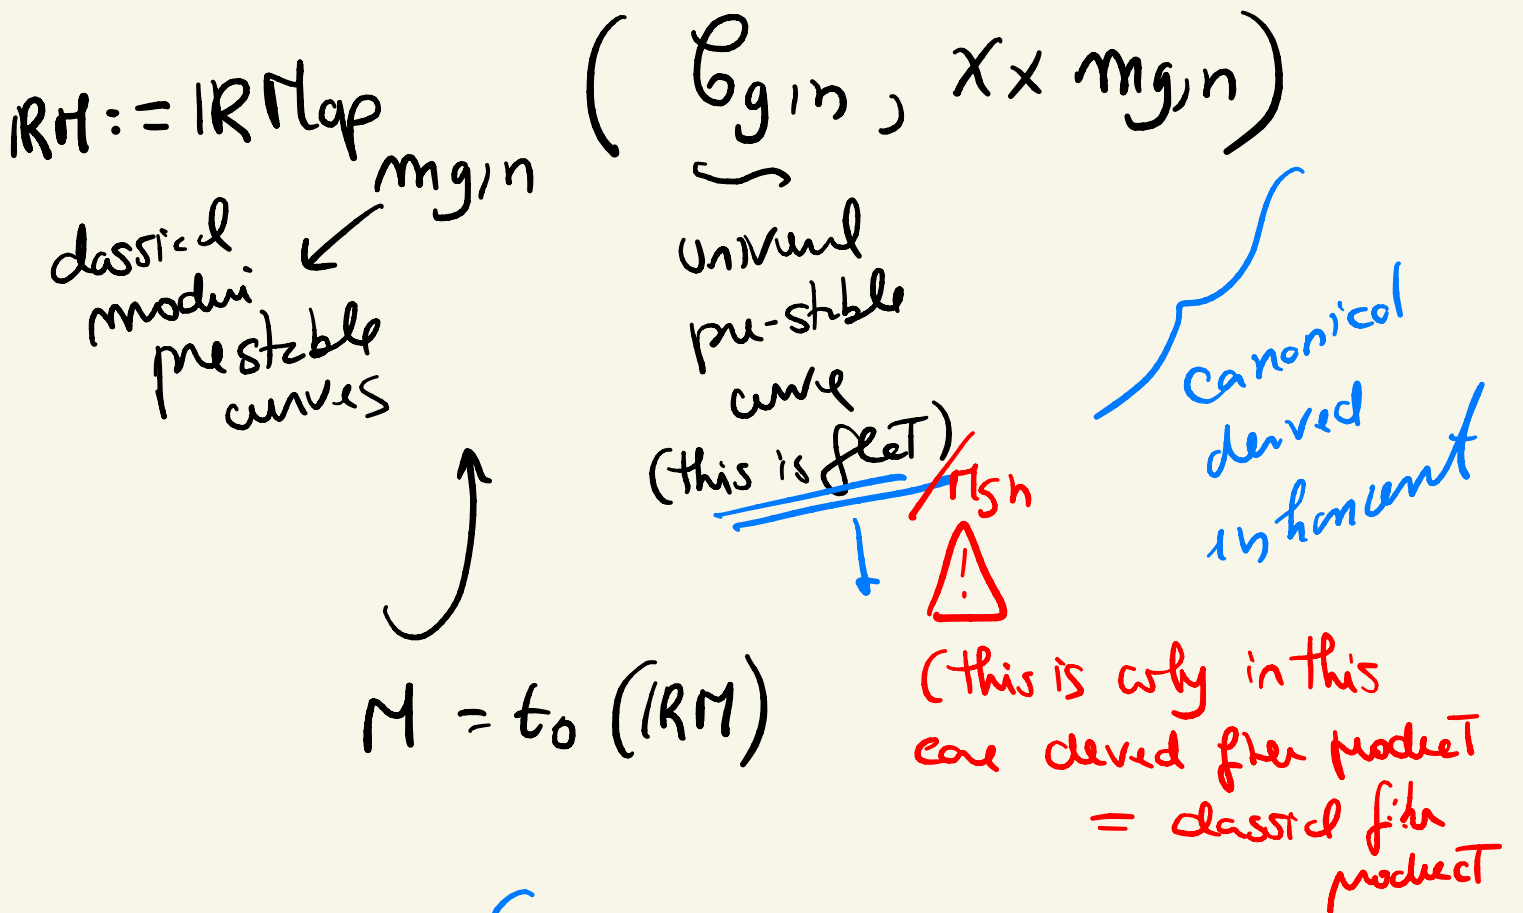 ℝM := ℝMap_{m_{g,n}} ( 𝒞_{g,n}, X × m_{g,n} )
classical
moduli
prestable
curves
universal
pre-stable
curve
(this is flat) / M_{g,n}
!
canonical
derived
enhancement
M = t₀ (ℝM)
(this is why in this
case derived fiber product
= classical fiber
product